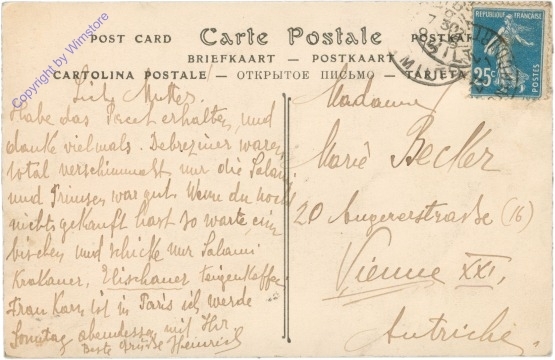 POST CARD Carte Postale POSTKARTE
BRIEFKAART — POSTKAART
CARTOLINA POSTALE — ОТКРЫТОЕ ПИСЬМО — TARJETA
Copyright by Wimstore
REPUBLIQUE FRANÇAISE
25c
7 30
Lieb Mutter.
Habe das Packet erhalten, und
danke vielmals. Debreziner waren
total verschimmelt nur die Salami
und Primsen war gut. Wenn du noch
nichts gekauft hast so warte ein
bischen und schicke nur Salami
Krakauer,
Frau Karn ist in Paris ich werde
Sonntag abendessen mit Ihr
Beste Grüße Heinrich
Madame
Marie Becker
20 Angererstrasse (16)
Vienne XXI,
Autriche